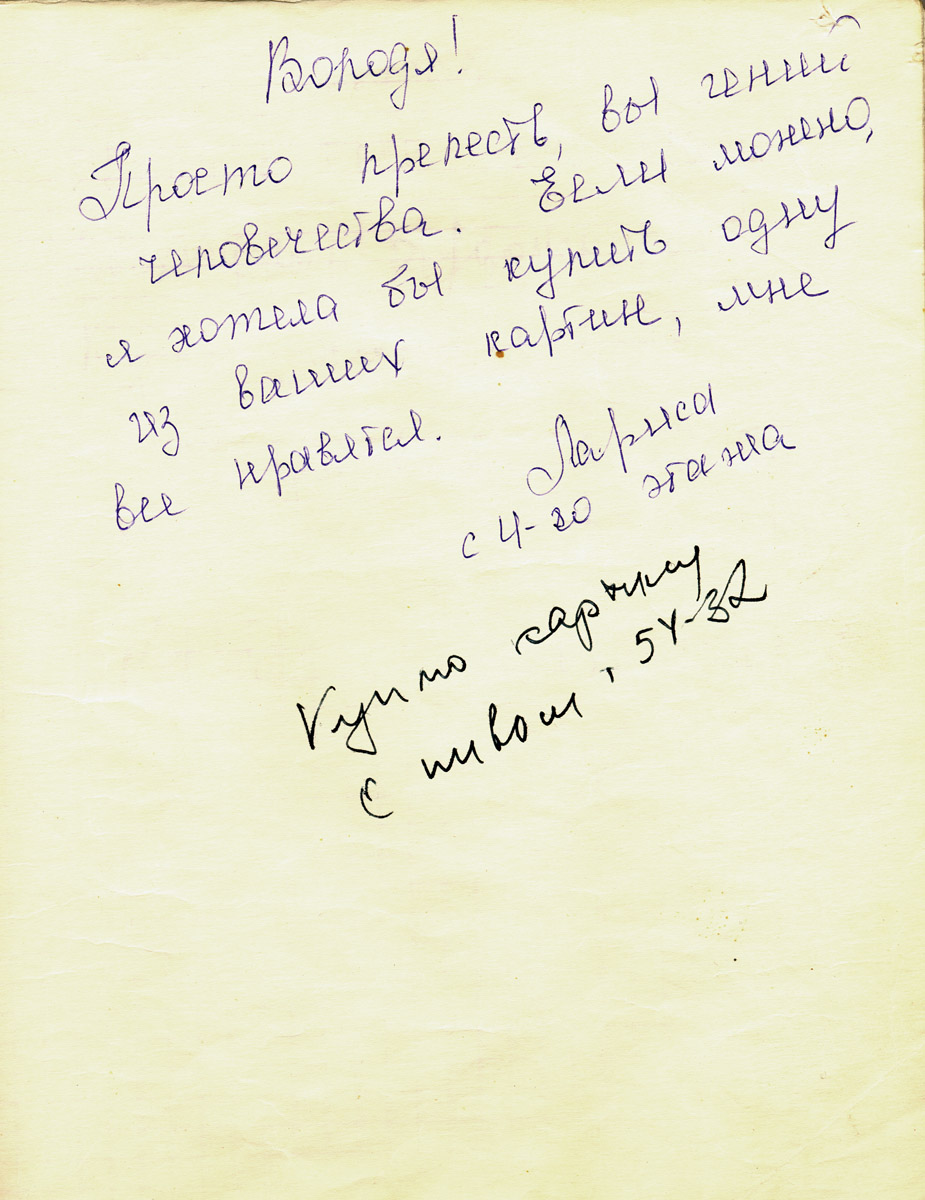 Володя!
Просто прелесть, вы гений
человечества. Если можно,
я хотела бы купить одну
из ваших картин, мне
все нравятся.
Лариса
с 4-го этажа
Куплю картину
с пивом, 54-32